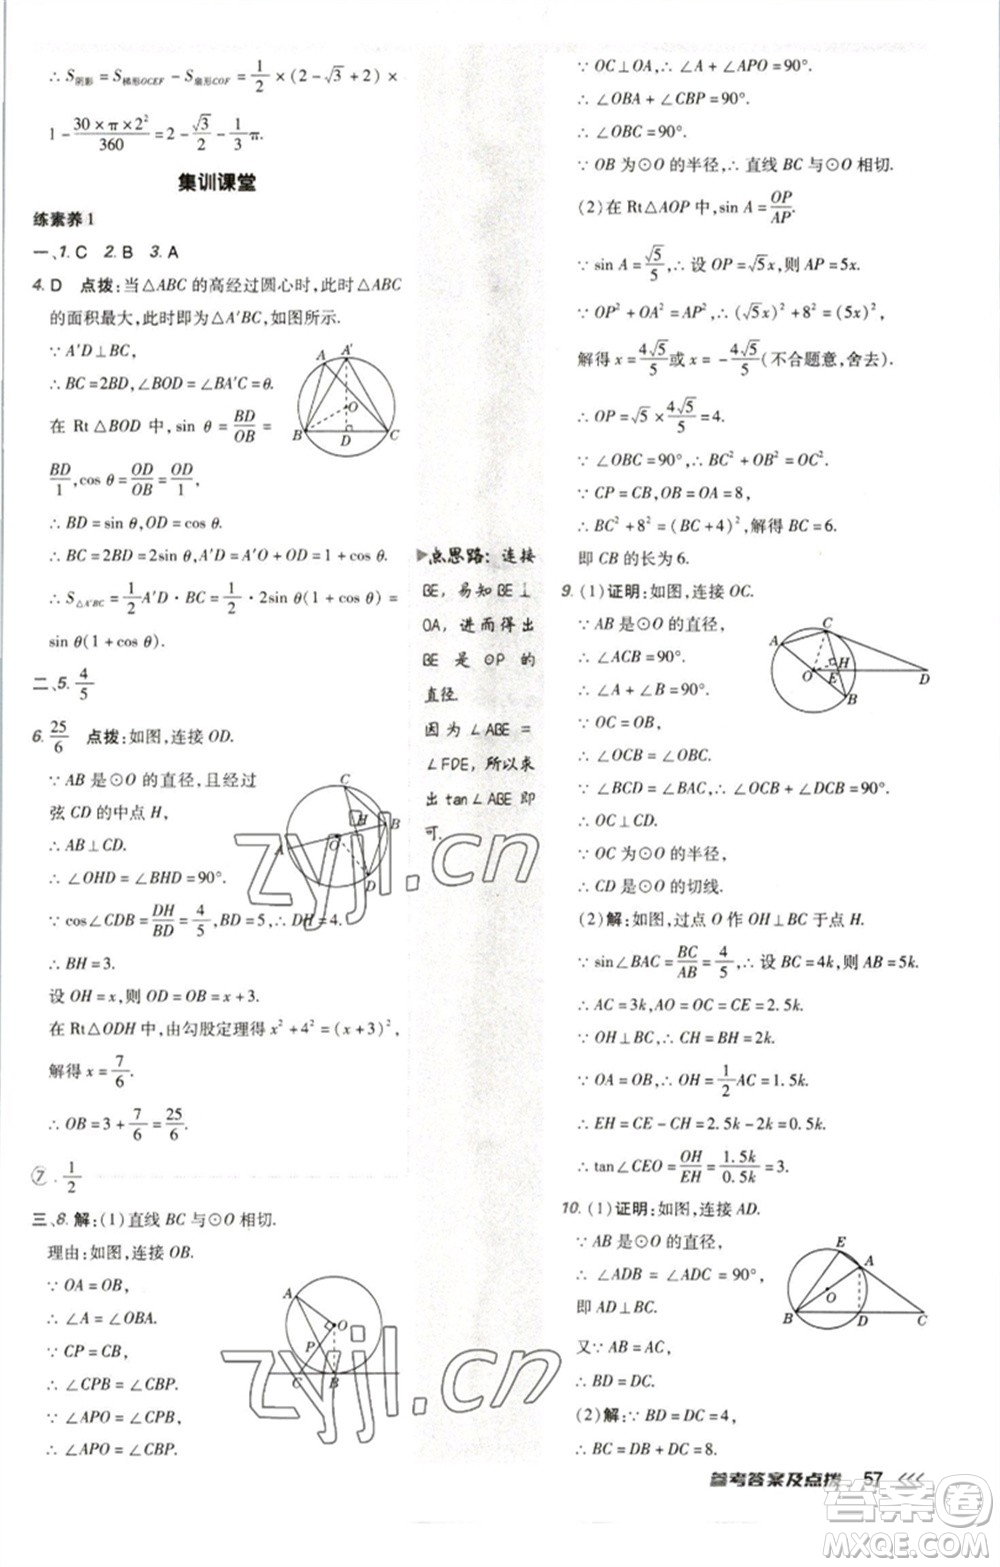 ∴ S阴影 = S梯形OCEF − S扇形COF = 1/2 × (2 − √3 + 2) ×
1 − (30 × π × 2²)/360 = 2 − √3/2 − 1/3 π.
集训课堂
练素养 1
一、1. C  2. B  3. A
4. D  点拨：当△ABC 的高经过圆心时，此时△ABC
的面积最大，此时即为△A′BC，如图所示.
∵ A′D⊥BC，
∴ BC = 2BD，∠BOD = ∠BA′C = θ.
在 Rt△BOD 中，sin θ = BD/OB =
BD/1，cos θ = OD/OB = OD/1，
∴ BD = sin θ，OD = cos θ.
∴ BC = 2BD = 2sin θ，A′D = A′O + OD = 1 + cos θ.
∴ S△A′BC = 1/2 A′D · BC = 1/2 · 2sin θ(1 + cos θ) =
sin θ(1 + cos θ).
A A′ O B D C
二、5. 4/5
6. 25/6  点拨：如图，连接 OD.
∵ AB 是⊙O 的直径，且经过
弦 CD 的中点 H，
∴ AB⊥CD.
∴ ∠OHD = ∠BHD = 90°.
∵ cos∠CDB = DH/BD = 4/5，BD = 5，∴ DH = 4.
∴ BH = 3.
设 OH = x，则 OD = OB = x + 3.
在 Rt△ODH 中，由勾股定理得 x² + 4² = (x + 3)²，
解得 x = 7/6.
∴ OB = 3 + 7/6 = 25/6.
C H B O A D
⑦. 1/2
三、8. 解：(1)直线 BC 与⊙O 相切.
理由：如图，连接 OB.
∵ OA = OB，
∴ ∠A = ∠OBA.
∵ CP = CB，
∴ ∠CPB = ∠CBP.
∵ ∠APO = ∠CPB，
∴ ∠APO = ∠CBP.
A O P C B
▶点思路：连接
BE，易知BE⊥
OA，进而得出
BE 是 ⊙P 的
直径.
因为 ∠ABE =
∠FDE，所以求
出 tan∠ABE 即
可.
∵ OC⊥OA，∴ ∠A + ∠APO = 90°.
∴ ∠OBA + ∠CBP = 90°.
∴ ∠OBC = 90°.
∵ OB 为⊙O 的半径，∴ 直线 BC 与⊙O 相切.
(2)在 Rt△AOP 中，sin A = OP/AP.
∵ sin A = √5/5，∴ 设 OP = √5x，则 AP = 5x.
∵ OP² + OA² = AP²，∴ (√5x)² + 8² = (5x)²，
解得 x = 4√5/5 或 x = −4√5/5(不合题意，舍去).
∴ OP = √5 × 4√5/5 = 4.
∵ ∠OBC = 90°，∴ BC² + OB² = OC².
∵ CP = CB，OB = OA = 8，
∴ BC² + 8² = (BC + 4)²，解得 BC = 6.
即 CB 的长为 6.
9. (1)证明：如图，连接 OC.
∵ AB 是⊙O 的直径，
∴ ∠ACB = 90°.
∴ ∠A + ∠B = 90°.
∵ OC = OB，
∴ ∠OCB = ∠OBC.
∵ ∠BCD = ∠BAC，∴ ∠OCB + ∠DCB = 90°.
∴ OC⊥CD.
∵ OC 为⊙O 的半径，
∴ CD 是⊙O 的切线.
A C H O E D B
(2)解：如图，过点 O 作 OH⊥BC 于点 H.
∵ sin∠BAC = BC/AB = 4/5，∴ 设 BC = 4k，则 AB = 5k.
∴ AC = 3k，AO = OC = CE = 2.5k.
∵ OH⊥BC，∴ CH = BH = 2k.
∵ OA = OB，∴ OH = 1/2 AC = 1.5k.
∴ EH = CE − CH = 2.5k − 2k = 0.5k.
∴ tan∠CEO = OH/EH = 1.5k/0.5k = 3.
10. (1)证明：如图，连接 AD.
∵ AB 是⊙O 的直径，
∴ ∠ADB = ∠ADC = 90°，
即 AD⊥BC.
又∵ AB = AC，
∴ BD = DC.
E A O B D C
(2)解：∵ BD = DC = 4，
∴ BC = BD + DC = 8.
参考答案及点拨  57
zyjl.cn
zyjl.cn
答案圈
MXQE.COM